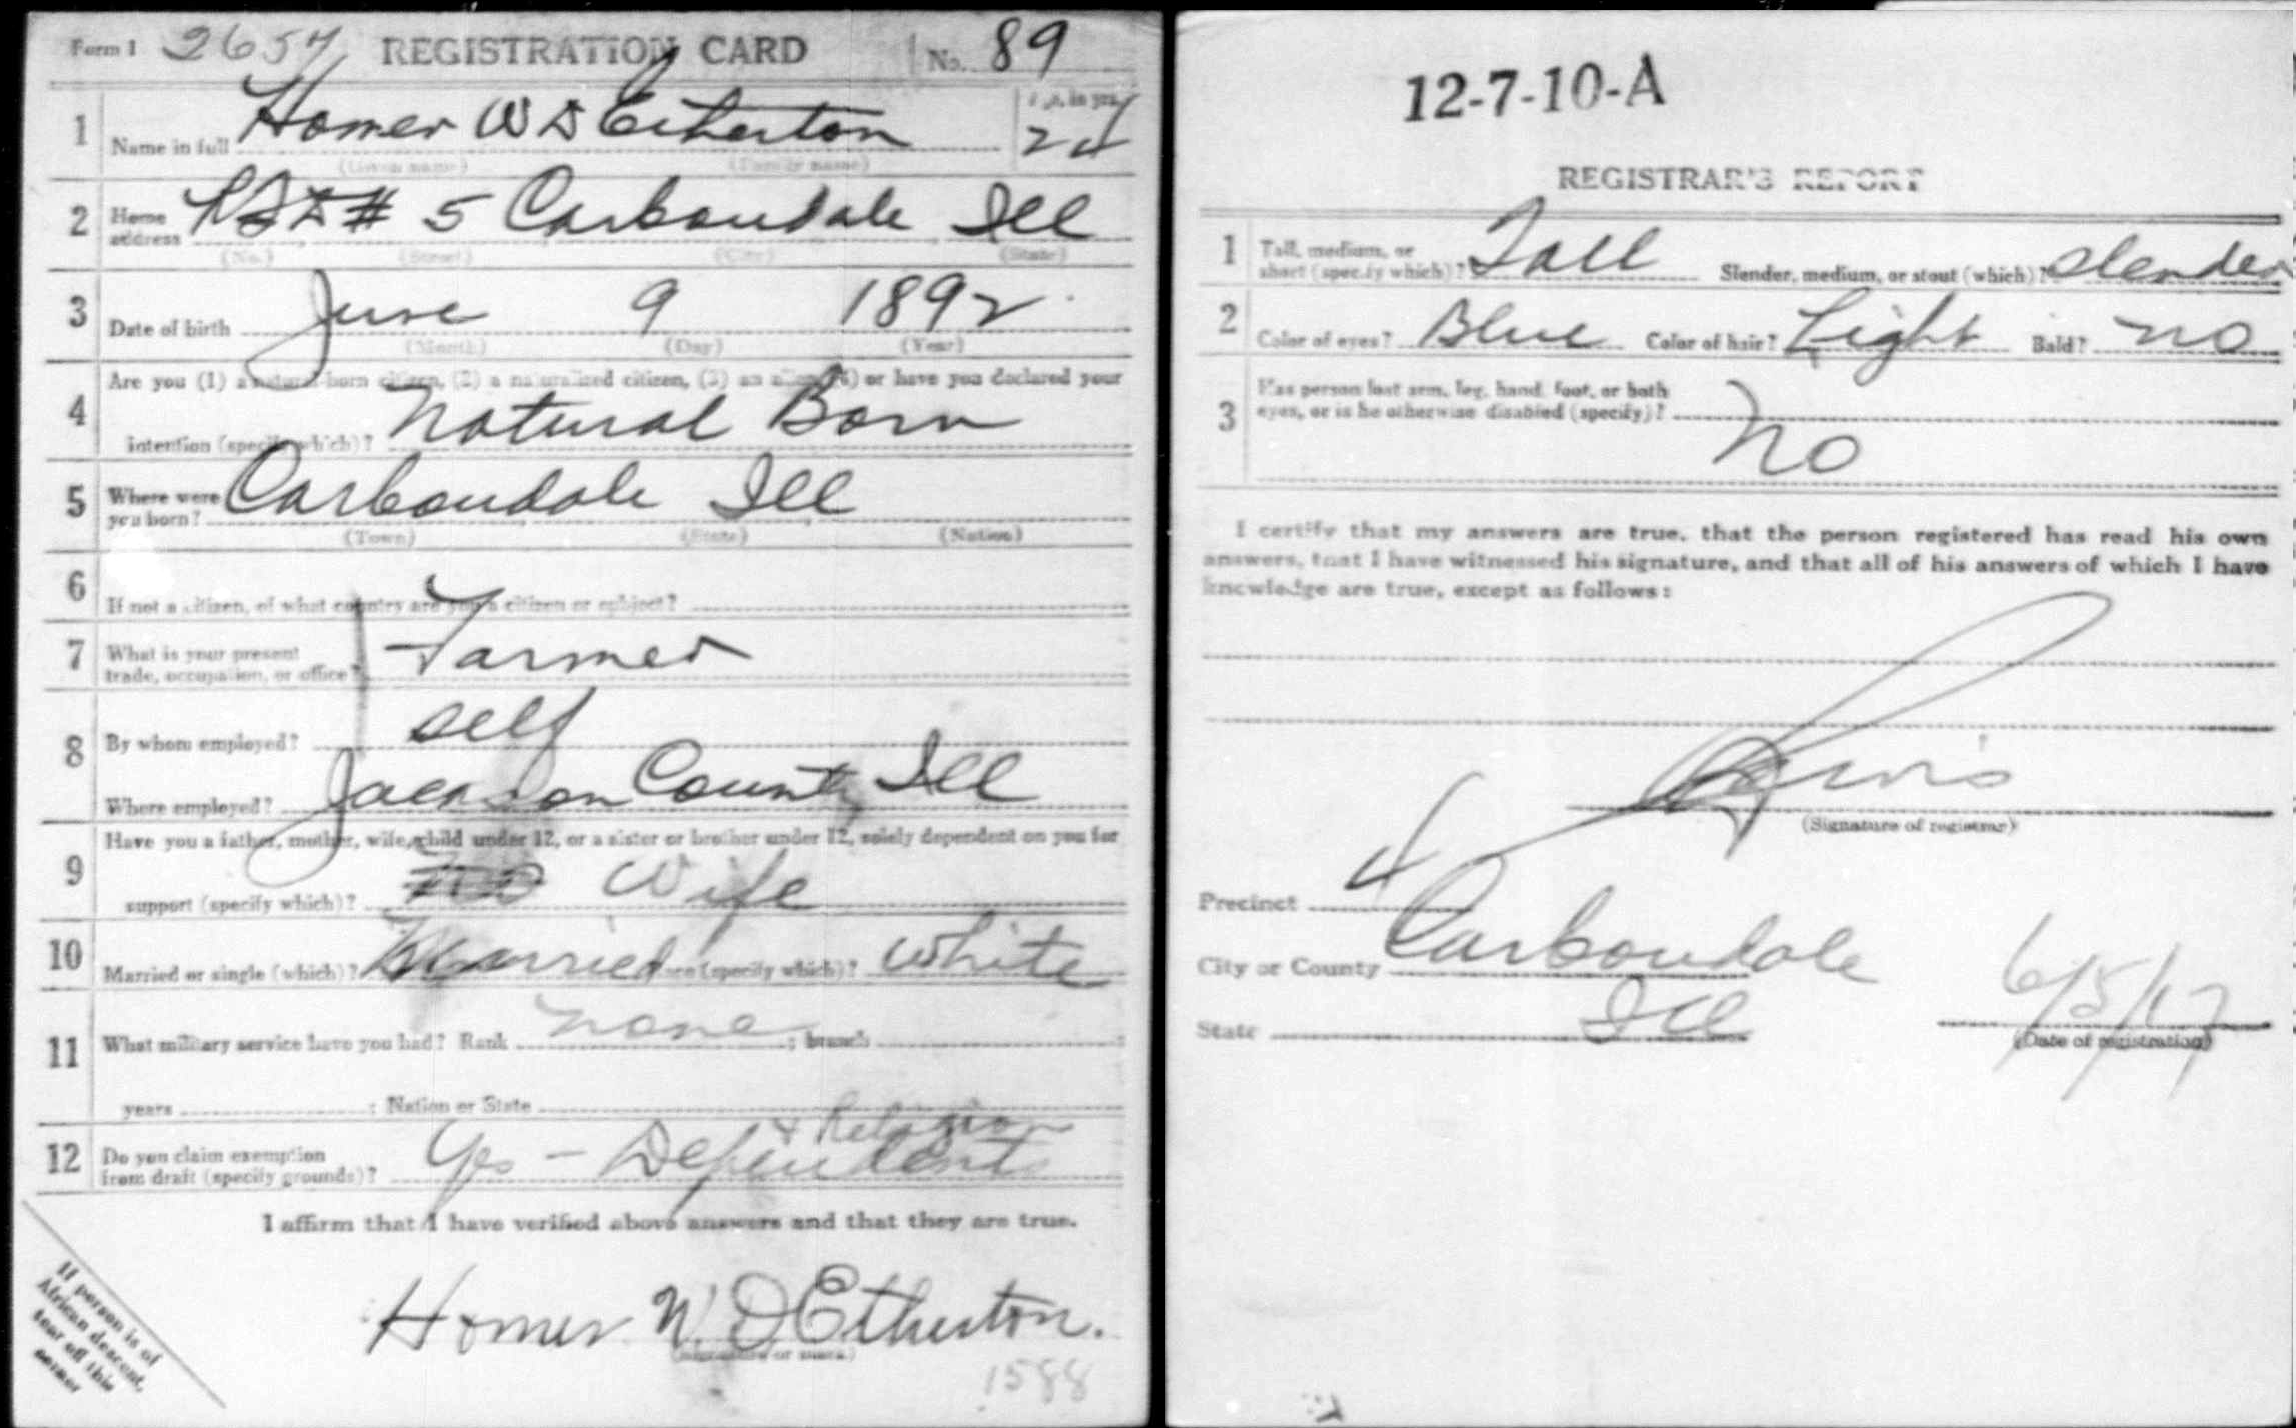 Form 1 2657 REGISTRATION CARD No. 89
1 Name in full Homer W D Etherton Age, in yrs. 24
(Given name) (Family name)
2 Home address RFD # 5 Carbondale Ill
(No.) (Street) (City) (State)
3 Date of birth June 9 1892
(Month) (Day) (Year)
4 Are you (1) a natural-born citizen, (2) a naturalized citizen, (3) an alien, (4) or have you declared your
intention (specify which)? Natural Born
5 Where were you born? Carbondale Ill
(Town) (State) (Nation)
6 If not a citizen, of what country are you a citizen or subject?
7 What is your present trade, occupation, or office? Farmer
8 By whom employed? self
Where employed? Jackson County Ill
9 Have you a father, mother, wife, child under 12, or a sister or brother under 12, solely dependent on you for
support (specify which)? Wife
10 Married or single (which)? Married Race (specify which)? White
11 What military service have you had? Rank none ; branch
years ; Nation or State
+ Religion
12 Do you claim exemption from draft (specify grounds)? Yes - Dependents
I affirm that I have verified above answers and that they are true.
Homer W. D Etherton.
(Signature or mark)
1588
If person is of
African descent,
tear off this
corner
12-7-10-A
REGISTRAR'S REPORT
1 Tall, medium, or short (specify which)? Tall Slender, medium, or stout (which)? Slender
2 Color of eyes? Blue Color of hair? Light Bald? no
3 Has person lost arm, leg, hand, foot, or both
eyes, or is he otherwise disabled (specify)?
no
I certify that my answers are true, that the person registered has read his own
answers, that I have witnessed his signature, and that all of his answers of which I have
knowledge are true, except as follows:
(Signature of registrar)
Precinct 4
City or County Carbondale
State Ill 6/5/17
(Date of registration)